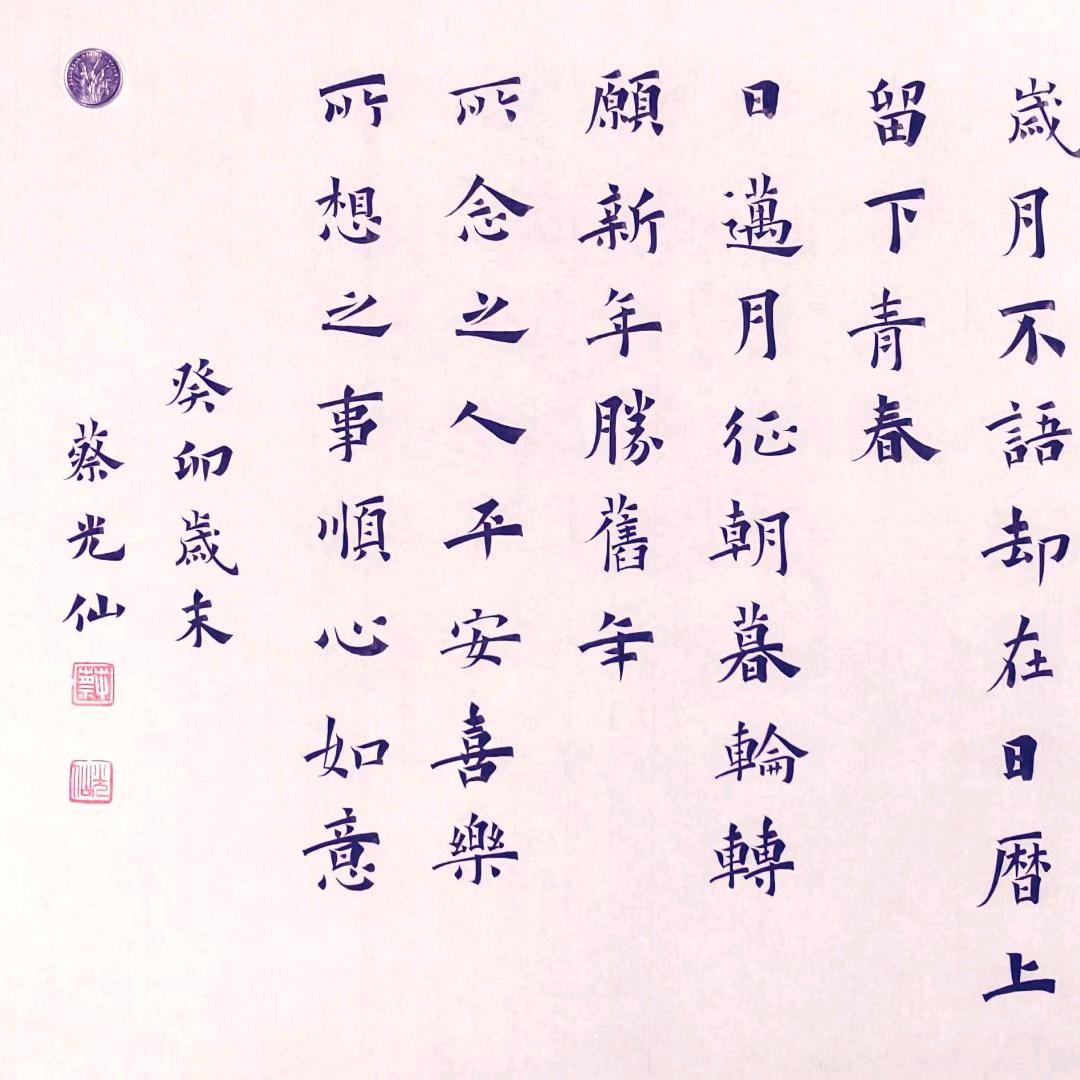 歲月不語却在日曆上
留下青春
日邁月征朝暮輪轉
願新年勝舊年
所念之人平安喜樂
所想之事順心如意
癸卯歲末
蔡光仙